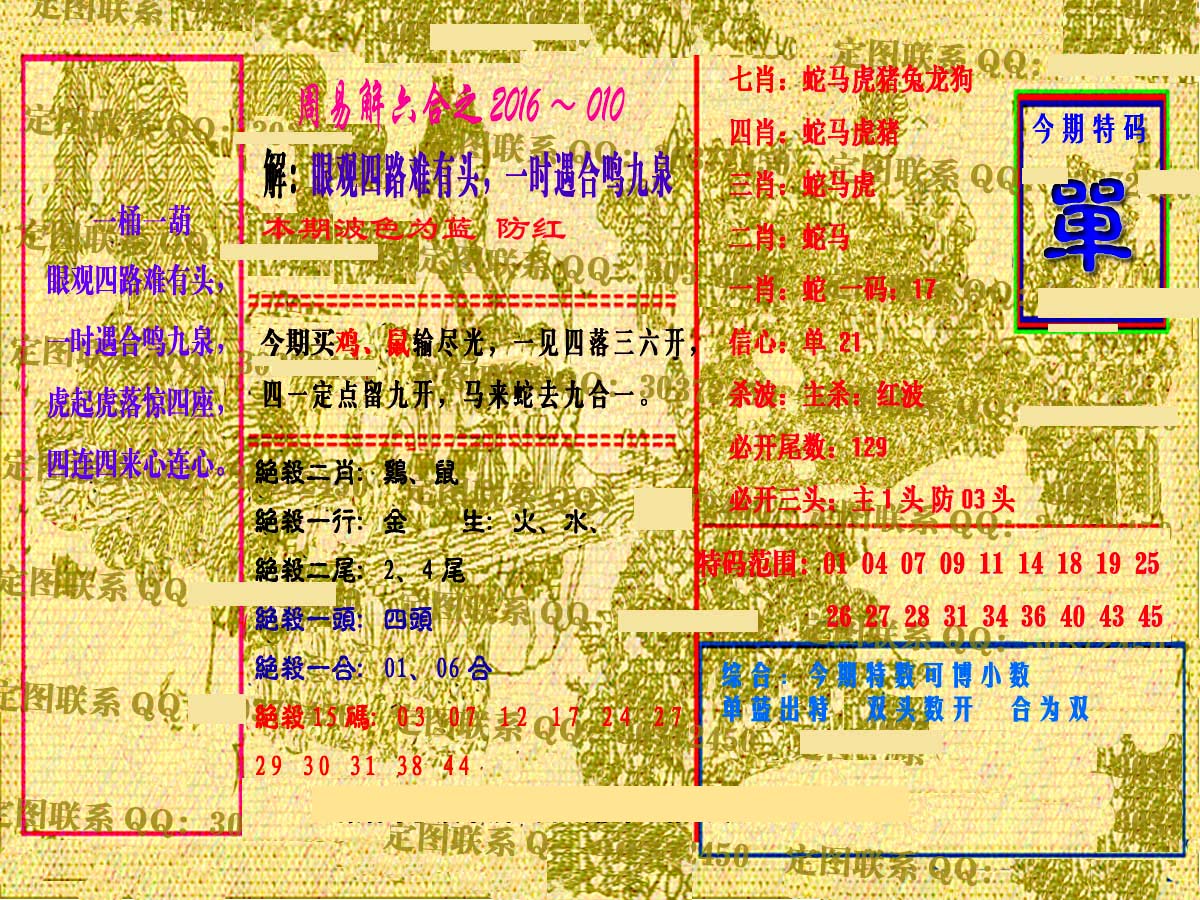 一桶一葫
眼观四路难有头，
一时遇合鸣九泉，
虎起虎落惊四座，
四连四来心连心。
周易解六合之2016～010
解：眼观四路难有头，一时遇合鸣九泉
本期波色为蓝 防红
今期买鸡、鼠输尽光，一见四落三六开，
四一定点留九开，马来蛇去九合一。
絕殺二肖：鷄、鼠
絕殺一行：金 生：火、水、
絕殺二尾：2、4尾
絕殺一頭：四頭
絕殺一合：01、06合
絕殺15碼：03 07 12 17 24 27
29 30 31 38 44
七肖：蛇马虎猪兔龙狗
四肖：蛇马虎猪
三肖：蛇马虎
二肖：蛇马
一肖：蛇 一码：17
信心：单 21
杀波：主杀：红波
必开尾数：129
必开三头：主1头防03头
今期特码
單
特码范围：01 04 07 09 11 14 18 19 25
26 27 28 31 34 36 40 43 45
综合：今期特数可博小数
单蓝出特 双头数开 合为双
定图联系QQ：